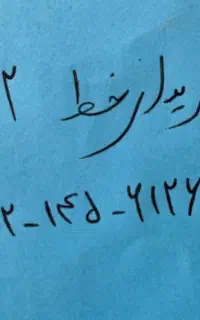 خط ۲
۲-۱۴۵-۶۱۲۶